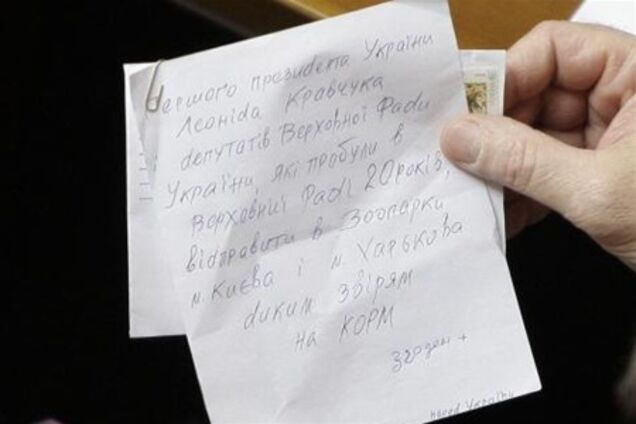 Першого президента України
Леоніда Кравчука
депутатів Верховної Ради
України, які пробули в
Верховний Раді 20 років,
відправити в Зоопарки
м. Києва і м. Харькова
диким звірям
на КОРМ
згоден +
народ України